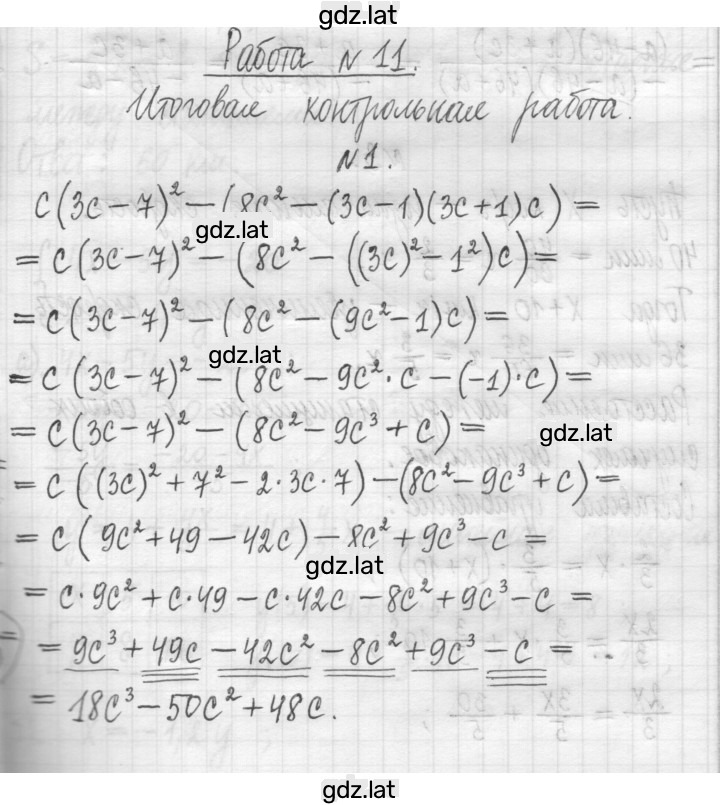 gdz.lat
Работа № 11.
Итоговая контрольная работа.
№1.
c(3c-7)² - (8c² - (3c-1)(3c+1)c) =
gdz.lat
= c(3c-7)² - (8c² - ((3c)² - 1²)c) =
= c(3c-7)² - (8c² - (9c² - 1)c) =
gdz.lat
= c(3c-7)² - (8c² - 9c²·c - (-1)·c) =
= c(3c-7)² - (8c² - 9c³ + c) =
gdz.lat
= c((3c)² + 7² - 2·3c·7) - (8c² - 9c³ + c) =
= c(9c² + 49 - 42c) - 8c² + 9c³ - c =
gdz.lat
= c·9c² + c·49 - c·42c - 8c² + 9c³ - c =
= 9c³ + 49c - 42c² - 8c² + 9c³ - c =
= 18c³ - 50c² + 48c.
gdz.lat